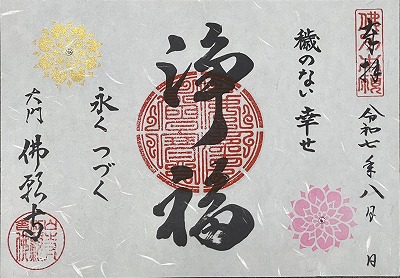 奉拝
令和七年八月 日
穢のない幸せ
浄福
永くつづく
大門 佛願寺